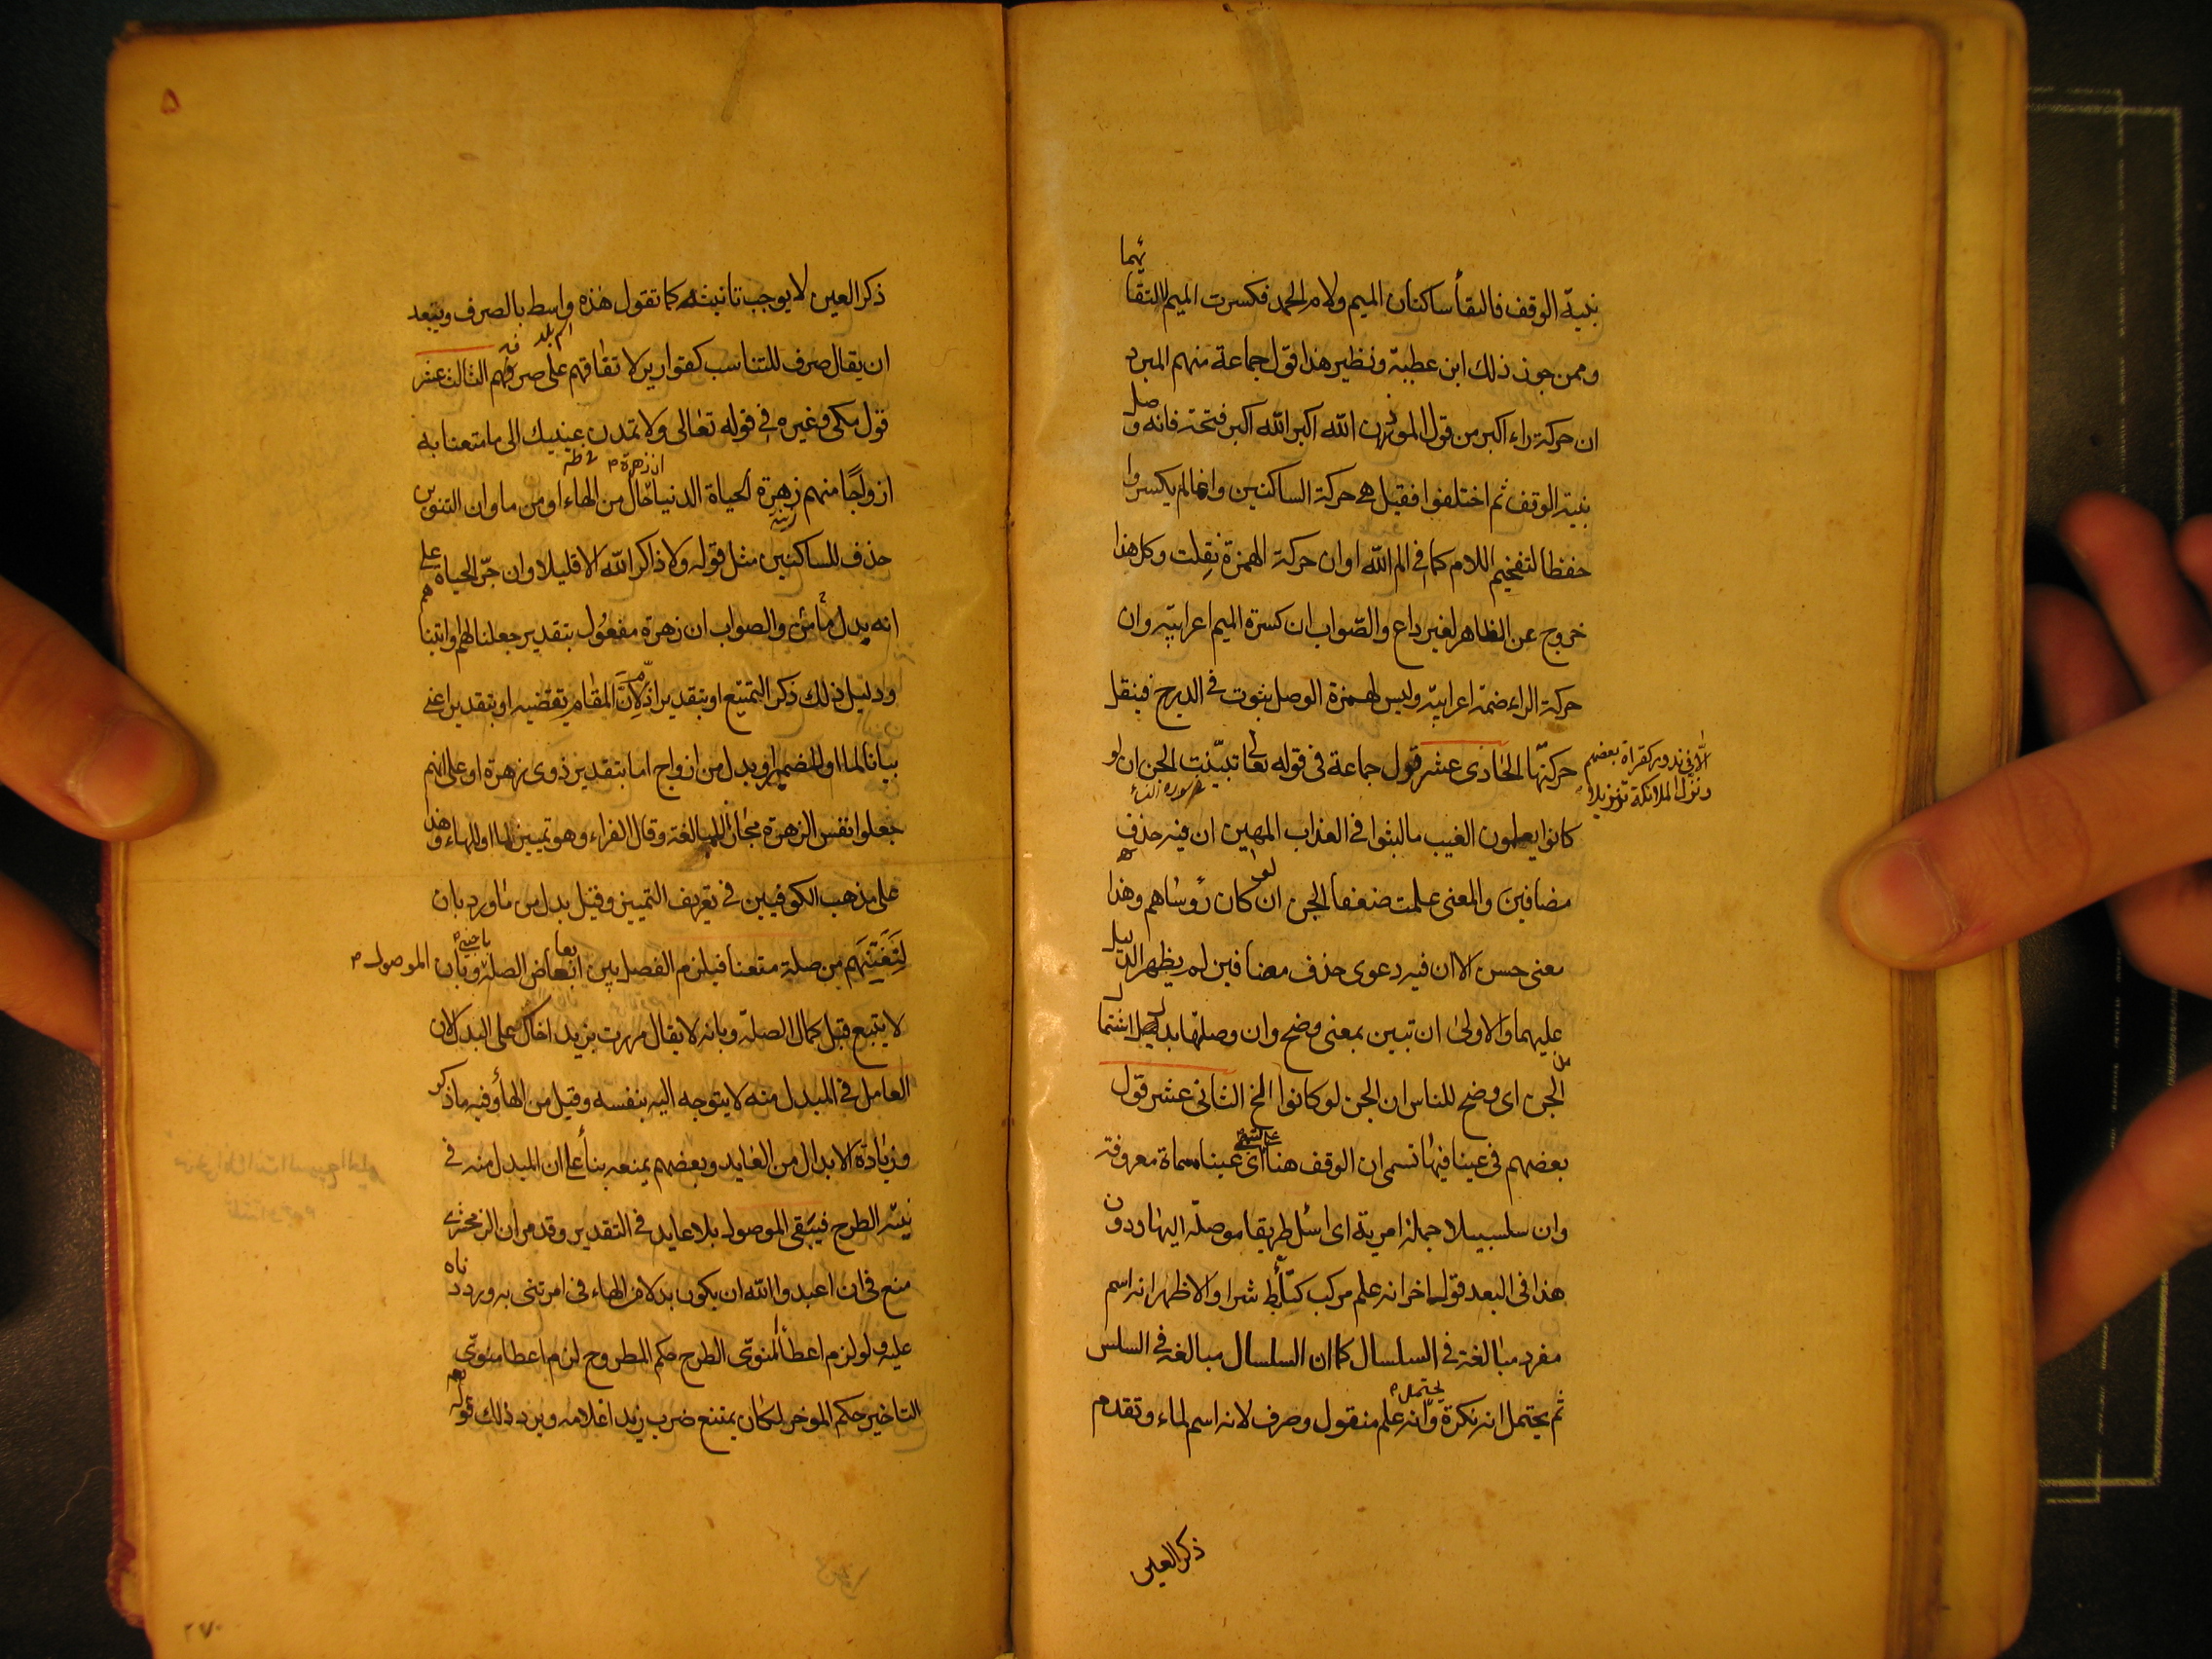 بنية الوقف فالتقأ ساكنان الميم ولام الحمد فكسرت الميم لالتقا
ئهما
وممن جوز ذلك ابن عطية ونظير هذا قول جماعة منهم المبرد
ان حركة راء اكبر من قول الموذن الله اكبر الله اكبر فتحة فانه وصل
بنية الوقف ثم اختلفوا فقيل هي حركة الساكنين وانما لم يكسروا
حفظا لتفخيم اللام كما في الم الله او ان حركة الهمزة نقلت وكل هذا
خروج عن الظاهر لغير داع والصّواب ان كسرة الميم اعرابيّه وان
حركة الراء ضمة اعرابيّه وليس لهمزة الوصل بثوت في الدرج فينقل
حركتها الحادى عشر قول جماعة في قوله تعالى تبيّنت الجن ان لو
الّا في ندور كقراة بعضهم
ونزل الملائكة تنزيلا
كانوا يعلمون الغيب مالبثوا في العذاب المهين ان فيه حذف
مضافين والمعنى علمت ضعفا الجن ان لو كان رؤساهم وهذا
معنى حسن الا ان فيه دعوى حذف مضافين لم يظهر الدليل
عليهما والاولى ان تبين بمعنى وضح وان وصلتها بدل اشتما
ل من
الجن اى وضح للناس ان الجن لو كانوا الخ الثانى عشر قول
بعضهم في عينا فيها تسمى ان الوقف هنا اى عينا مسماة معروفة
وان سلسبيلا جملة امرية اى اسئل طريقا موصلة اليها ودون
هذا في البعد قول اخر انه علم مركب كتأبط شرا والاظهر انه اسم
مفرد مبالغة في السلسال كما ان السلسال مبالغة في السلس
ثم يحتمل انه نكرة ويحتمل انه علم منقول وصرف لانه اسم لماء وتقدم
ذكر العين
۵
ذكر العين لا يوجب تانيثه كما تقول هذه واسط بالصرف ويبعد
اسم بلد
ان يقال صرف للتناسب كقوارير لا تفاقهم على صرفه الثالث عشر
قول مكى وغيره في قوله تعالى ولا تمدن عينيك الى ما متعنا به
ازواجًا منهم زهرة الحياة الدنيا ان زهرة حال من الهاء او من ما وان التنوين
حذف للساكنين مثل قوله ولا ذاكر الله الا قليلا وان جرّ الحياة على
انه بدل من ما والصواب ان زهرة مفعُول بتقدير جعلنا لهم او اتينا
هم
ودليل ذلك ذكر التمتيع او بتقدير اذم لانّ المقام يقتضيه او بتقدير اعنى
بيانا لما او للضمير او بدل من ازواج اما بتقدير ذوى زهرة او على انهم
جعلوا نفس الزهرة مجازا للمبالغة وقال الفراء وهو تمييز لما او للهاء وهذ
على مذهب الكوفيين في تعريف التمييز وقيل بدل من ما ورد بان
لِنَفْتِنَهم من صلة متعنا فيلزم الفصل بين ابعاض الصلة باجنبي وبان الموصول
لا يتبع قبل كمال الصلة وبانه لا يقال مررت بزيد اخاك على البدل لان
العامل في المبدل منه لا يتوجه اليه بنفسه وقيل من الهأ وفيه ما ذكر
وزيادة الابدال من العايد وبعضهم يمنعه بناً على ان المبدل منه في
نيّة الطرح فيبقى الموصول بلا عايد في التقدير وقد مر ان الزمخشرى
منع في ان اعبدوا الله ان يكون بدلا من الهاء في امرتنى به ورددناه
عليه ولو لزم اعطأ المنوىّ الطرح حكم المطروح لزم اعطا منوىّ
التاخير حكم الموخر لكان يمتنع ضرب زيدا غلامه ويرد ذلك قوله تعم
٢٧٠